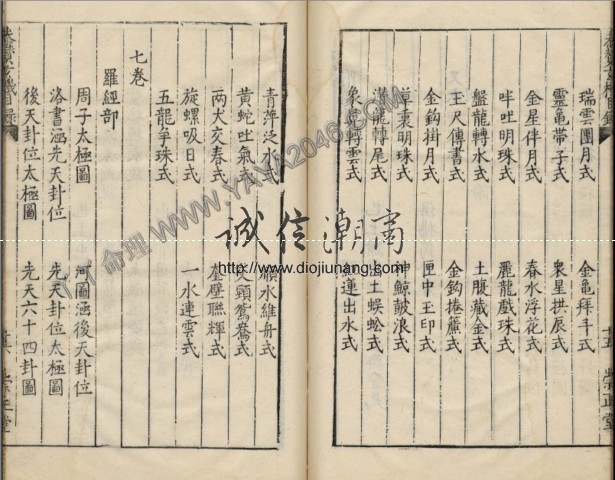 瑞雲團月式 金龜拜斗式
靈龜帶子式 眾星拱辰式
金星伴月式 春水浮花式
吐明珠式 麗龍戲珠式
盤龍轉水式 土腹藏金式
玉尺傳書式 金鈎捲簾式
金鈎掛月式 匣中玉印式
明珠式 鯨皷浪式
龍轉尾式 土蜈蚣式
象 轉雲式 蓮出水式
青萍泛水式 水維舟式
黃蛇吐氣式 交頸鴛鴦式
兩犬交春式 奎壁聯輝式
旋螺吸日式 一水連雲式
五龍爭珠式
七卷
羅經部
周子太極圖 河圖涵後天卦位
洛書涵先天卦位 先天卦位太極圖
後天卦位太極圖 先天六十四卦圖
崇正堂
誠信潮商
http://www.diojiunang.com
命理 WWW.YAYA2046.COM